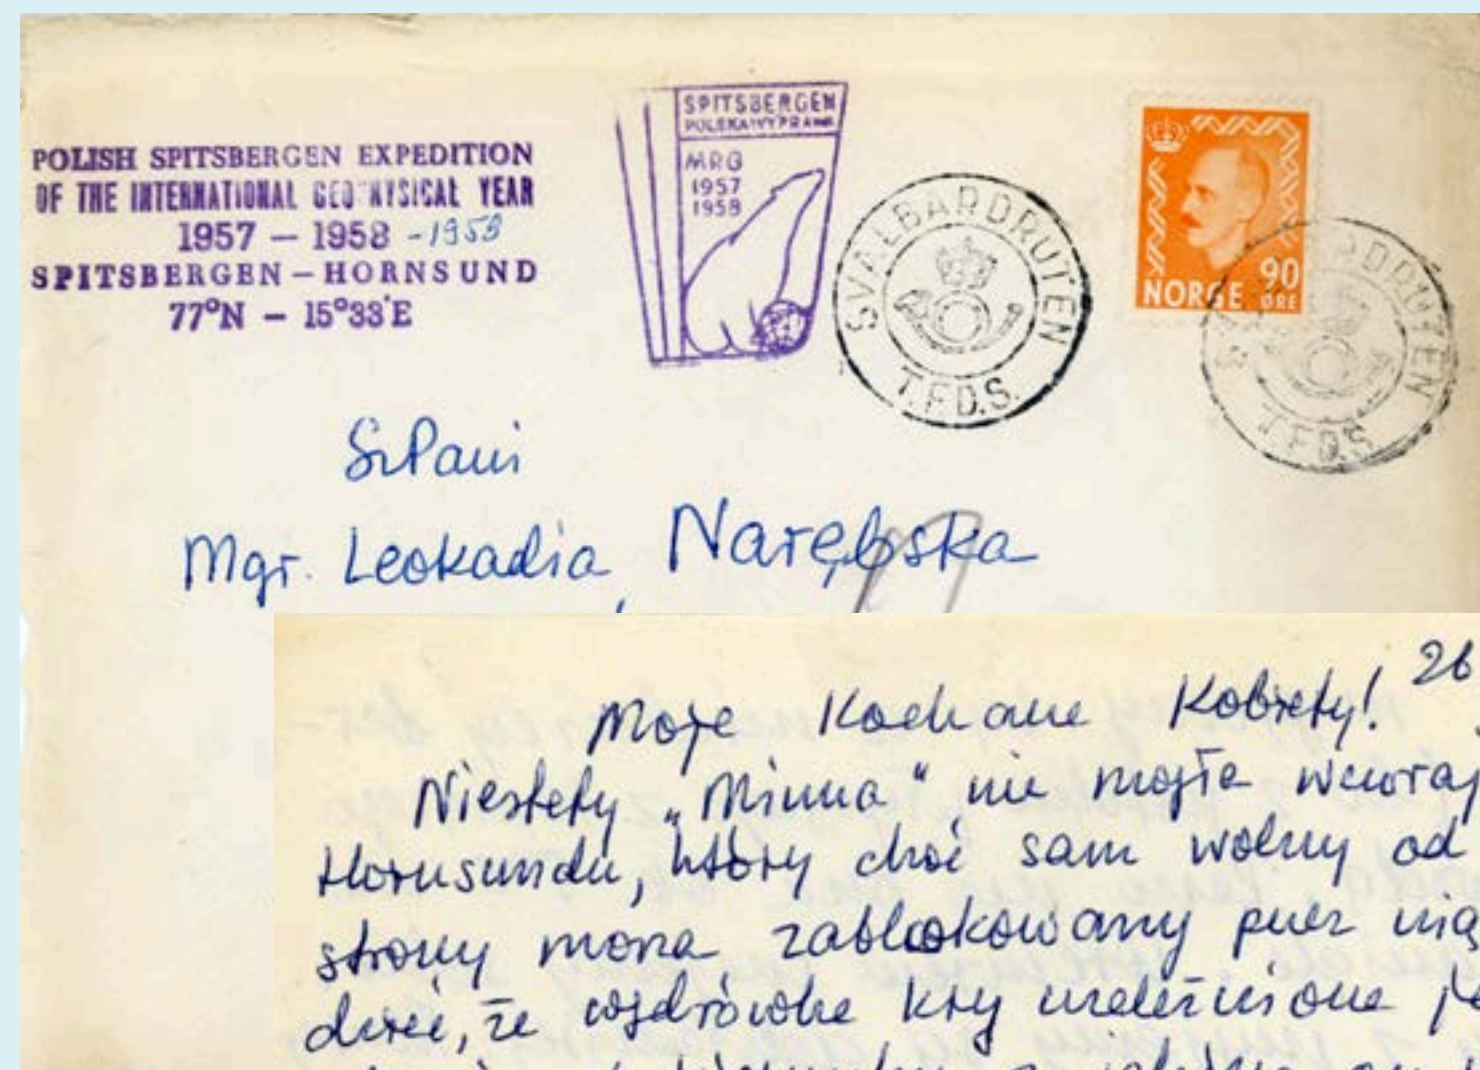 POLISH SPITSBERGEN EXPEDITION
OF THE INTERNATIONAL GEOPHYSICAL YEAR
1957 – 1958 -1959
SPITSBERGEN – HORNSUND
77°N – 15°33'E
SPITSBERGEN
POLSKA WYPRAWA
MRG
1957
1958
SVALBARDRUTEN
T.F.D.S.
NORGE 90 ØRE
SVALBARDRUTEN
T.F.D.S.
Mgr. Leokadia Narębska
Moje Kochane Kobiety! 26
Niestety „Minna" nie mogła wczoraj
Hornsundu, który choć sam wolny od
strony morza zablokowany przez
że wędrówka kry uzależniona